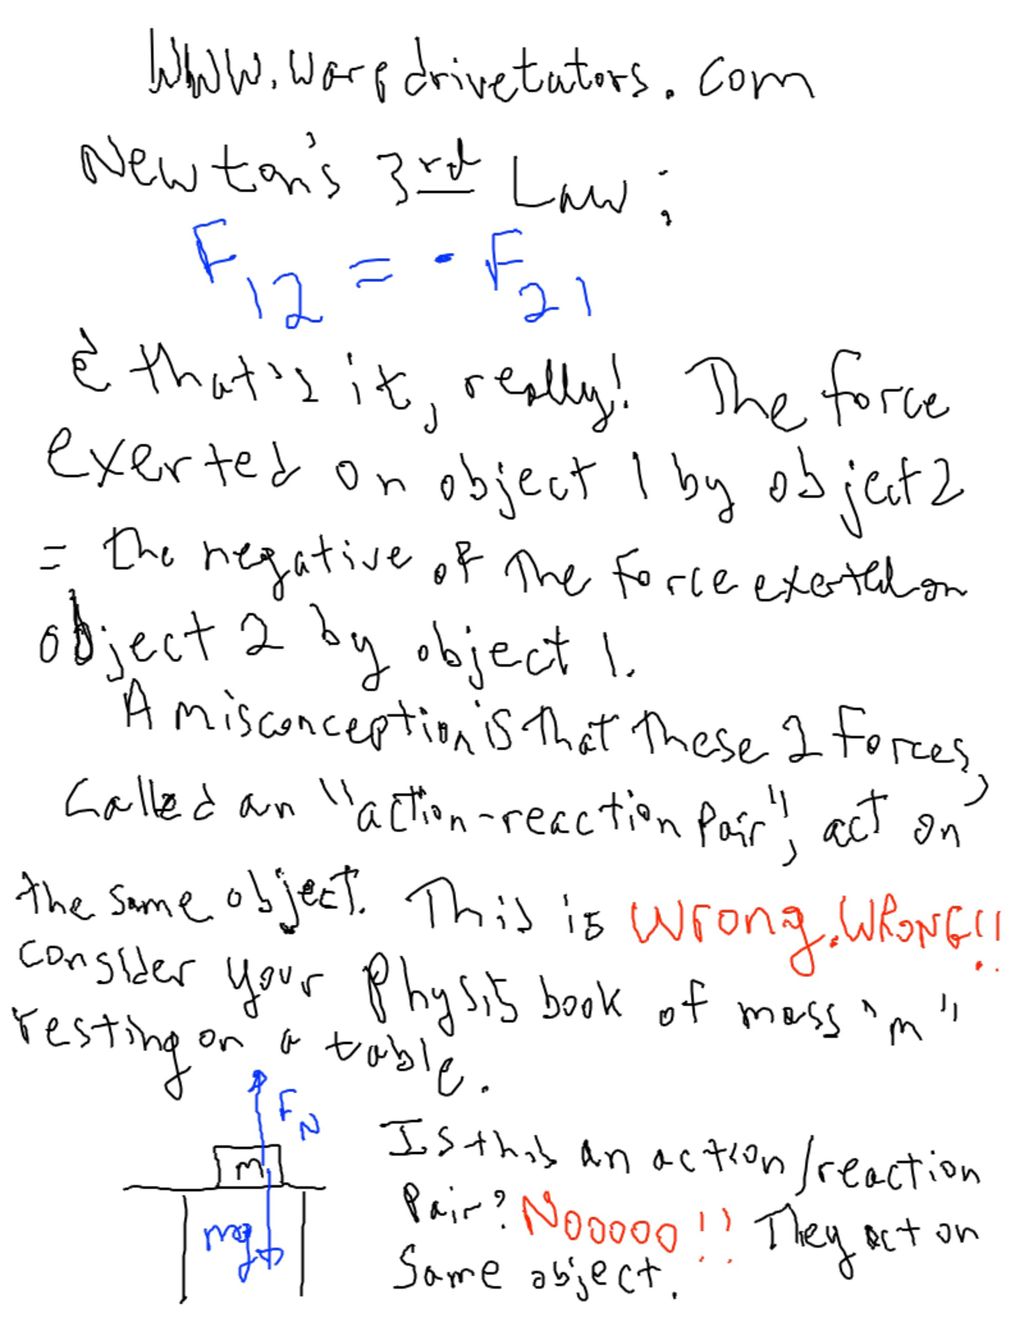 WWW.warpdrivetutors.com
Newton's 3rd Law:
F12 = - F21
& that's it, really! The force
exerted on object 1 by object 2
= the negative of the force exerted on
object 2 by object 1.
A misconception is that these 2 forces,
called an "action-reaction pair", act on
the same object. This is wrong. WRONG!!
Consider your Physics book of mass "m"
resting on a table.
FN
m
mg
Is this an action/reaction
pair? NOOOOO!! They act on
same object.